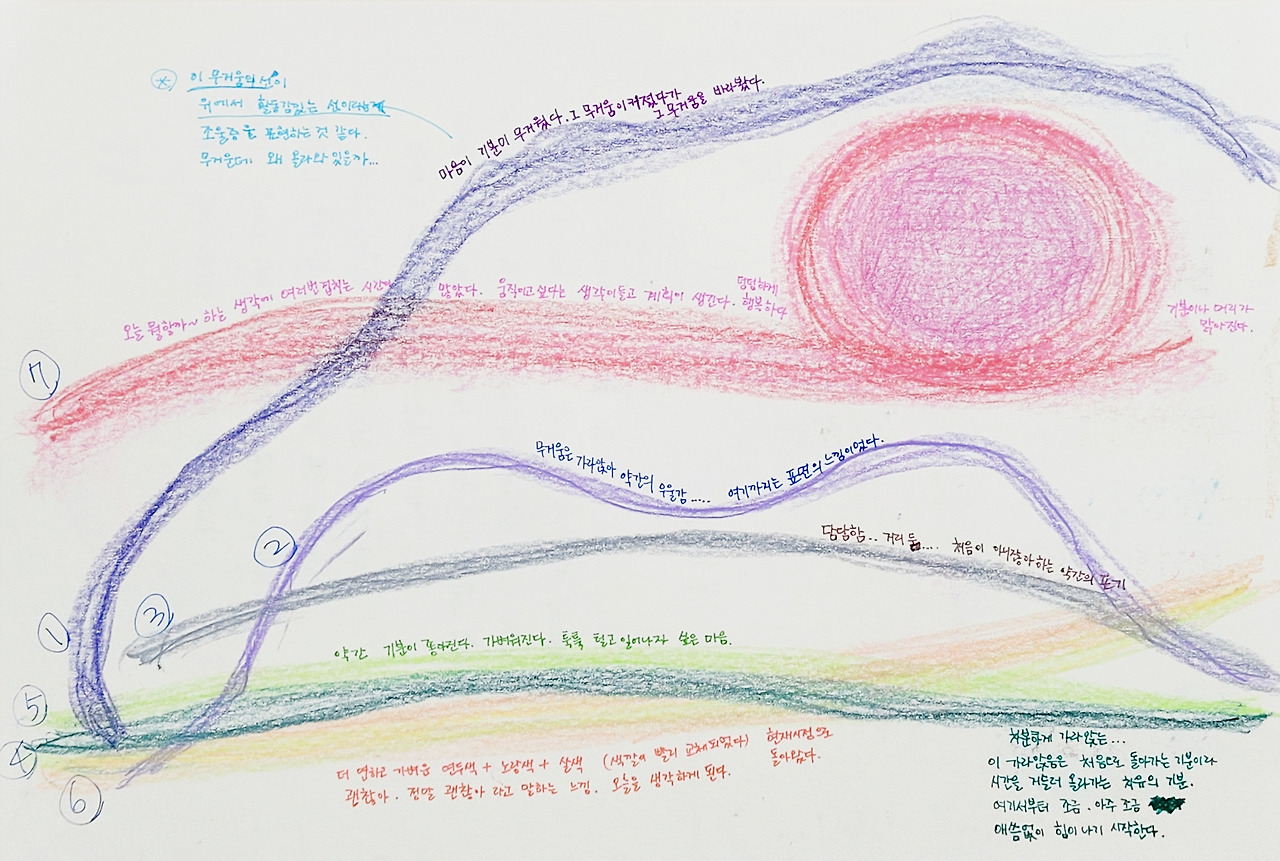 * 이 무거움의 선이
위에서 활동감있는 선이라는게
조울증을 표현하는 것 같다.
무거운데 왜 올라와 있을까...
마음이 기분이 무거웠다. 그 무거움이 커졌다가
그 무거움을 바라봤다.
오늘 뭘할까~ 하는 생각에 여러번 접히는 시간이 많았다. 움직이고 싶다는 생각이 들고 계획이 생긴다.
덤덤하게
행복하다
기분이나 머리가
맑아진다.
7
무거움은 가라앉아 약간의 우울감..... 여기까지는 표면의 느낌이었다.
2
담담함.. 거리 둠.... 처음이 아니잖아 하는 약간의 포기
3
1
약간 기분이 좋아진다. 가벼워진다. 툭툭 털고 일어나자 싶은 마음.
5
4
6
더 연하고 가벼운 연두색 + 노랑색 + 살색 (색깔이 빨리 교체되었다) 현재시점으로
돌아왔다.
괜찮아. 정말 괜찮아 라고 말하는 느낌. 오늘을 생각하게 된다.
차분하게 가라앉는...
이 가라앉음은 처음으로 돌아가는 기분이라
시간을 거슬러 올라가는 치유의 기분.
여기서부터 조금. 아주 조금
애씀없이 힘이 나기 시작한다.